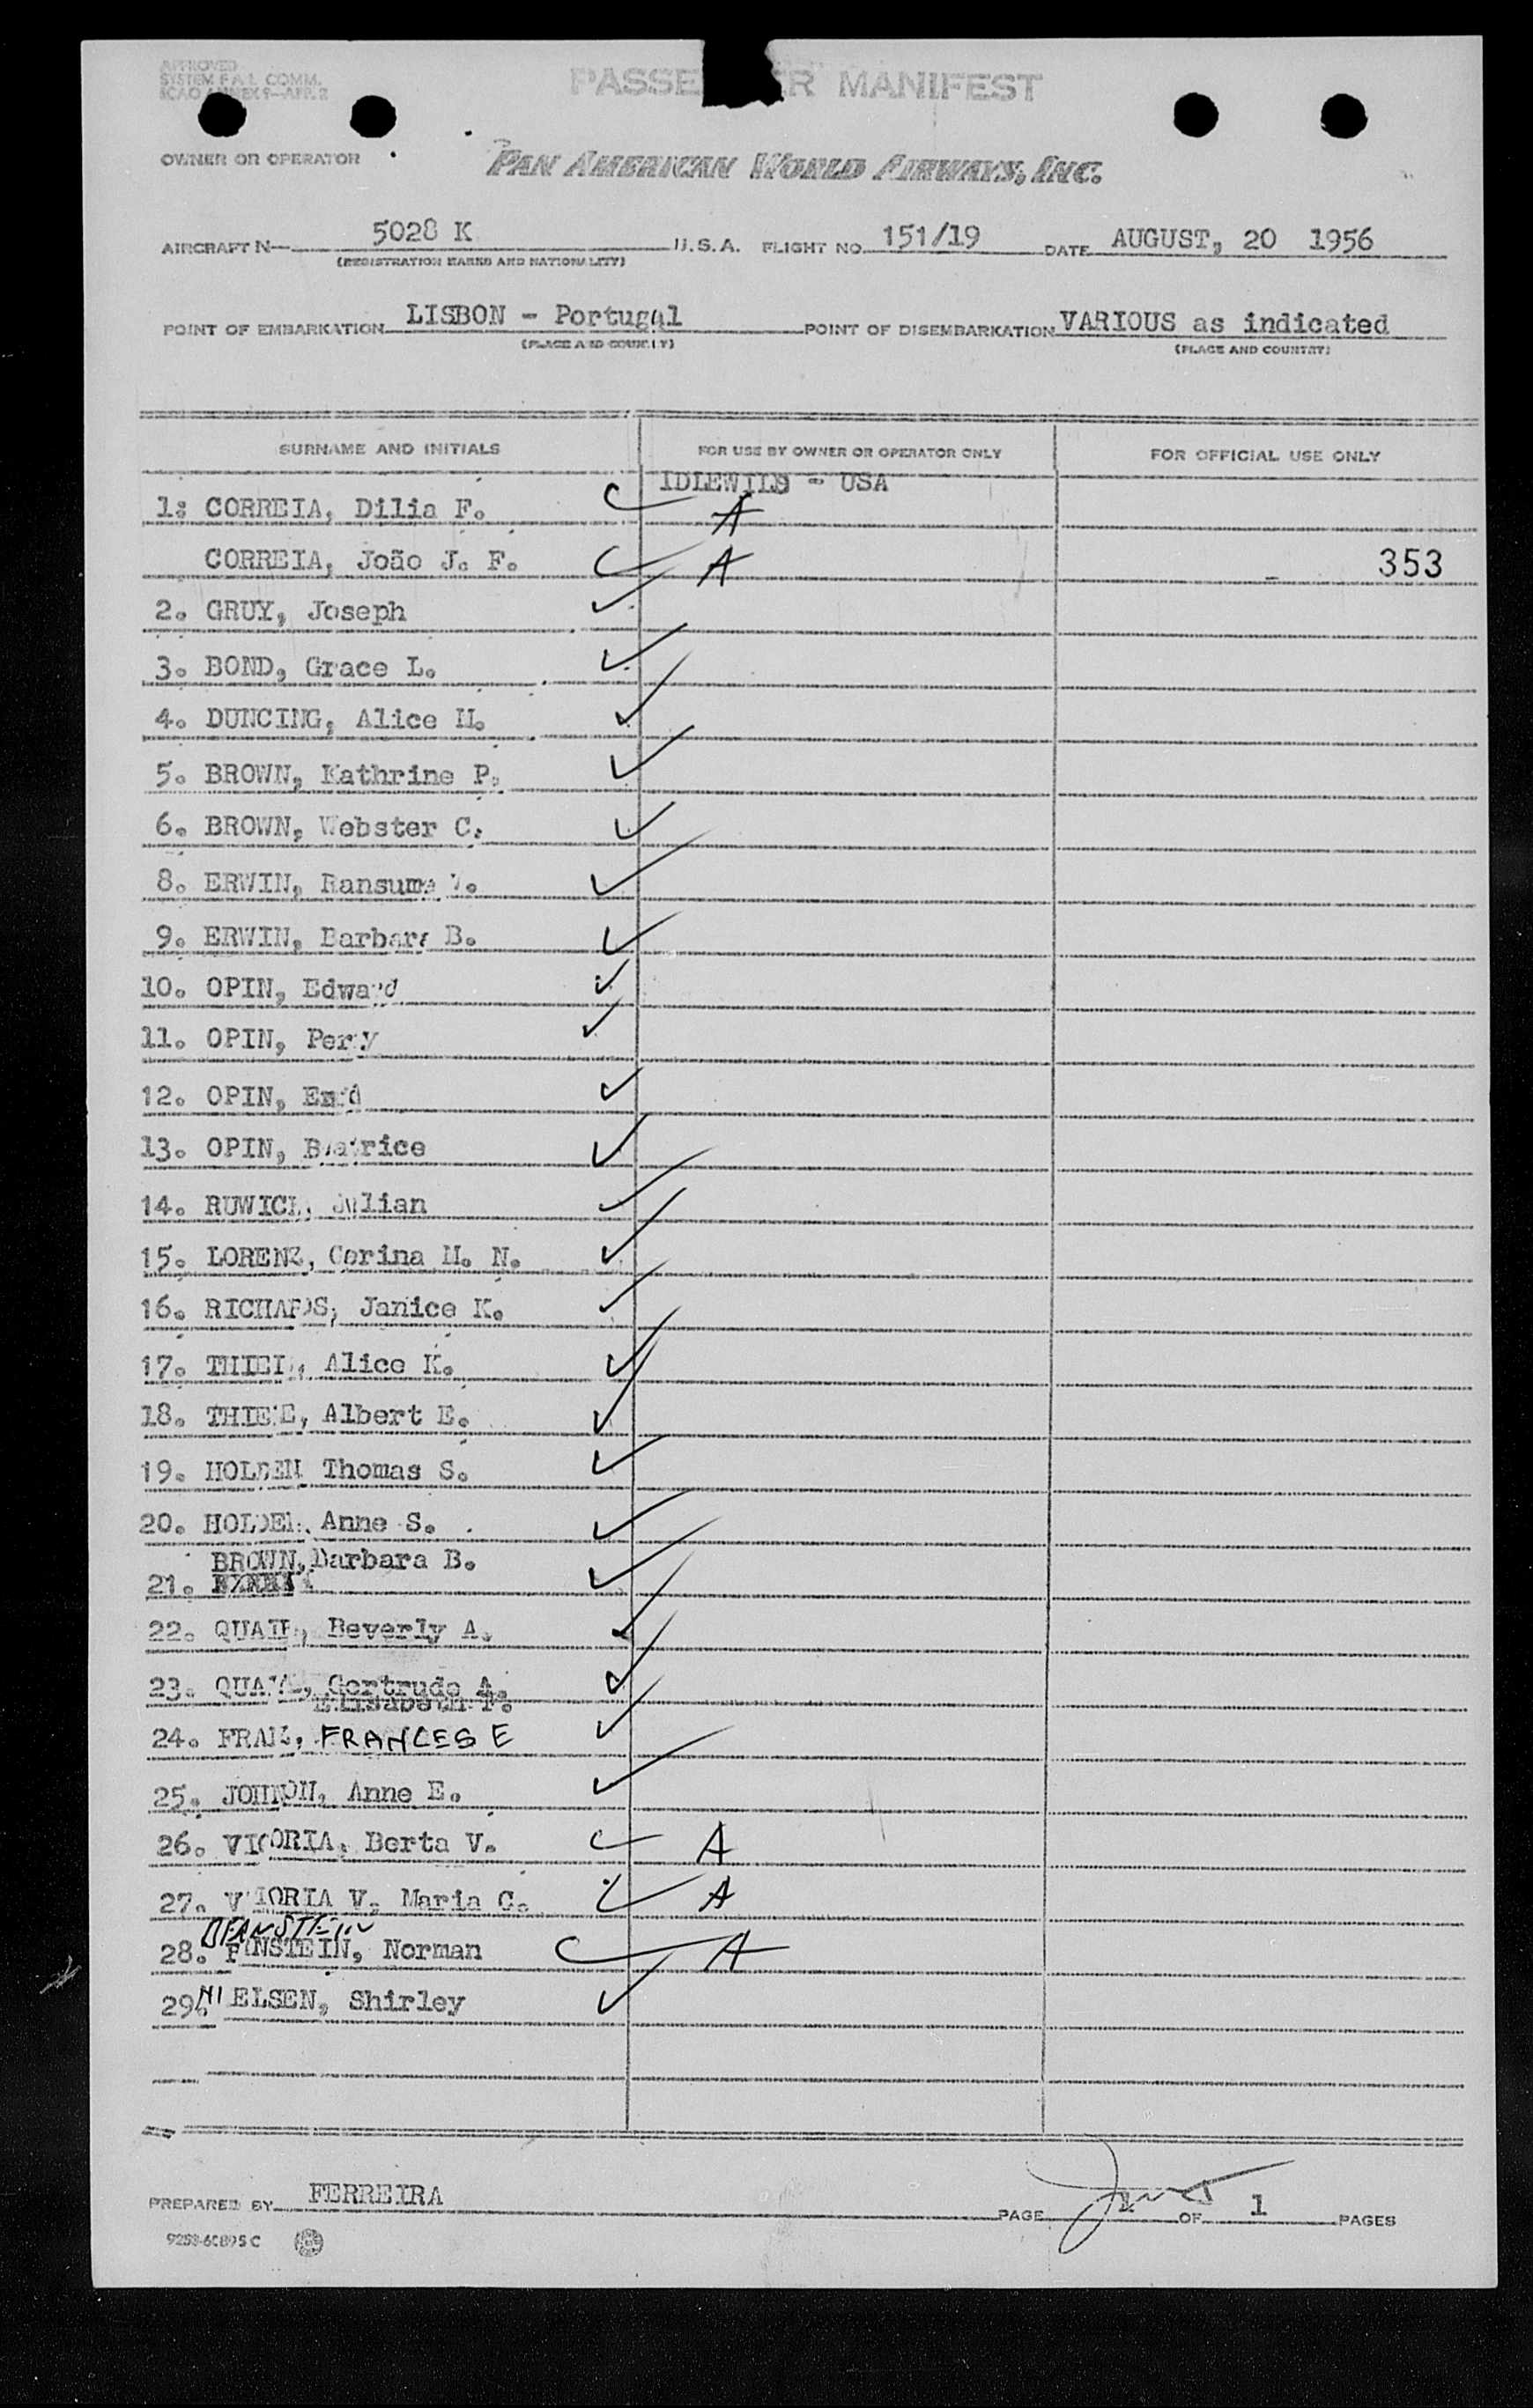 APPROVED
SYSTEM F.A.L. COMM.
ICAO ANNEX 9—APP. 2
PASSE ER MANIFEST
OWNER OR OPERATOR
PAN AMERICAN WORLD AIRWAYS, INC.
AIRCRAFT N— 5028 K U.S.A. FLIGHT NO. 151/19 DATE AUGUST, 20 1956
(REGISTRATION MARKS AND NATIONALITY)
POINT OF EMBARKATION LISBON - Portugal POINT OF DISEMBARKATION VARIOUS as indicated
(PLACE AND COUNTRY) (PLACE AND COUNTRY)
SURNAME AND INITIALS FOR USE BY OWNER OR OPERATOR ONLY FOR OFFICIAL USE ONLY
IDLEWILD - USA
1: CORREIA, Dilia F. A
CORREIA, João J. F. A 353
2. GRUY, Joseph
3. BOND, Grace L.
4. DUNCING, Alice M.
5. BROWN, Kathrine P.
6. BROWN, Webster C.
8. ERWIN, Ransume
9. ERWIN, Barbara B.
10. OPIN, Edward
11. OPIN, Perry
12. OPIN, Enid
13. OPIN, Beatrice
14. Julian
15. LORENZ, Corina M. N.
16. RICHARDS, Janice K.
17. Alice K.
18. Albert E.
19. HOLDEN Thomas S.
20. HOLDEN, Anne S.
BROWN, Barbara B.
21.
22. Beverly A.
23. Gertrude A.
Elisabeth F.
24. FRANCES E
25. Anne E.
26. Berta V. A
27. V. Maria C. A
28. Norman A
29. NIELSEN, Shirley
PREPARED BY FERREIRA PAGE 1 OF 1 PAGES